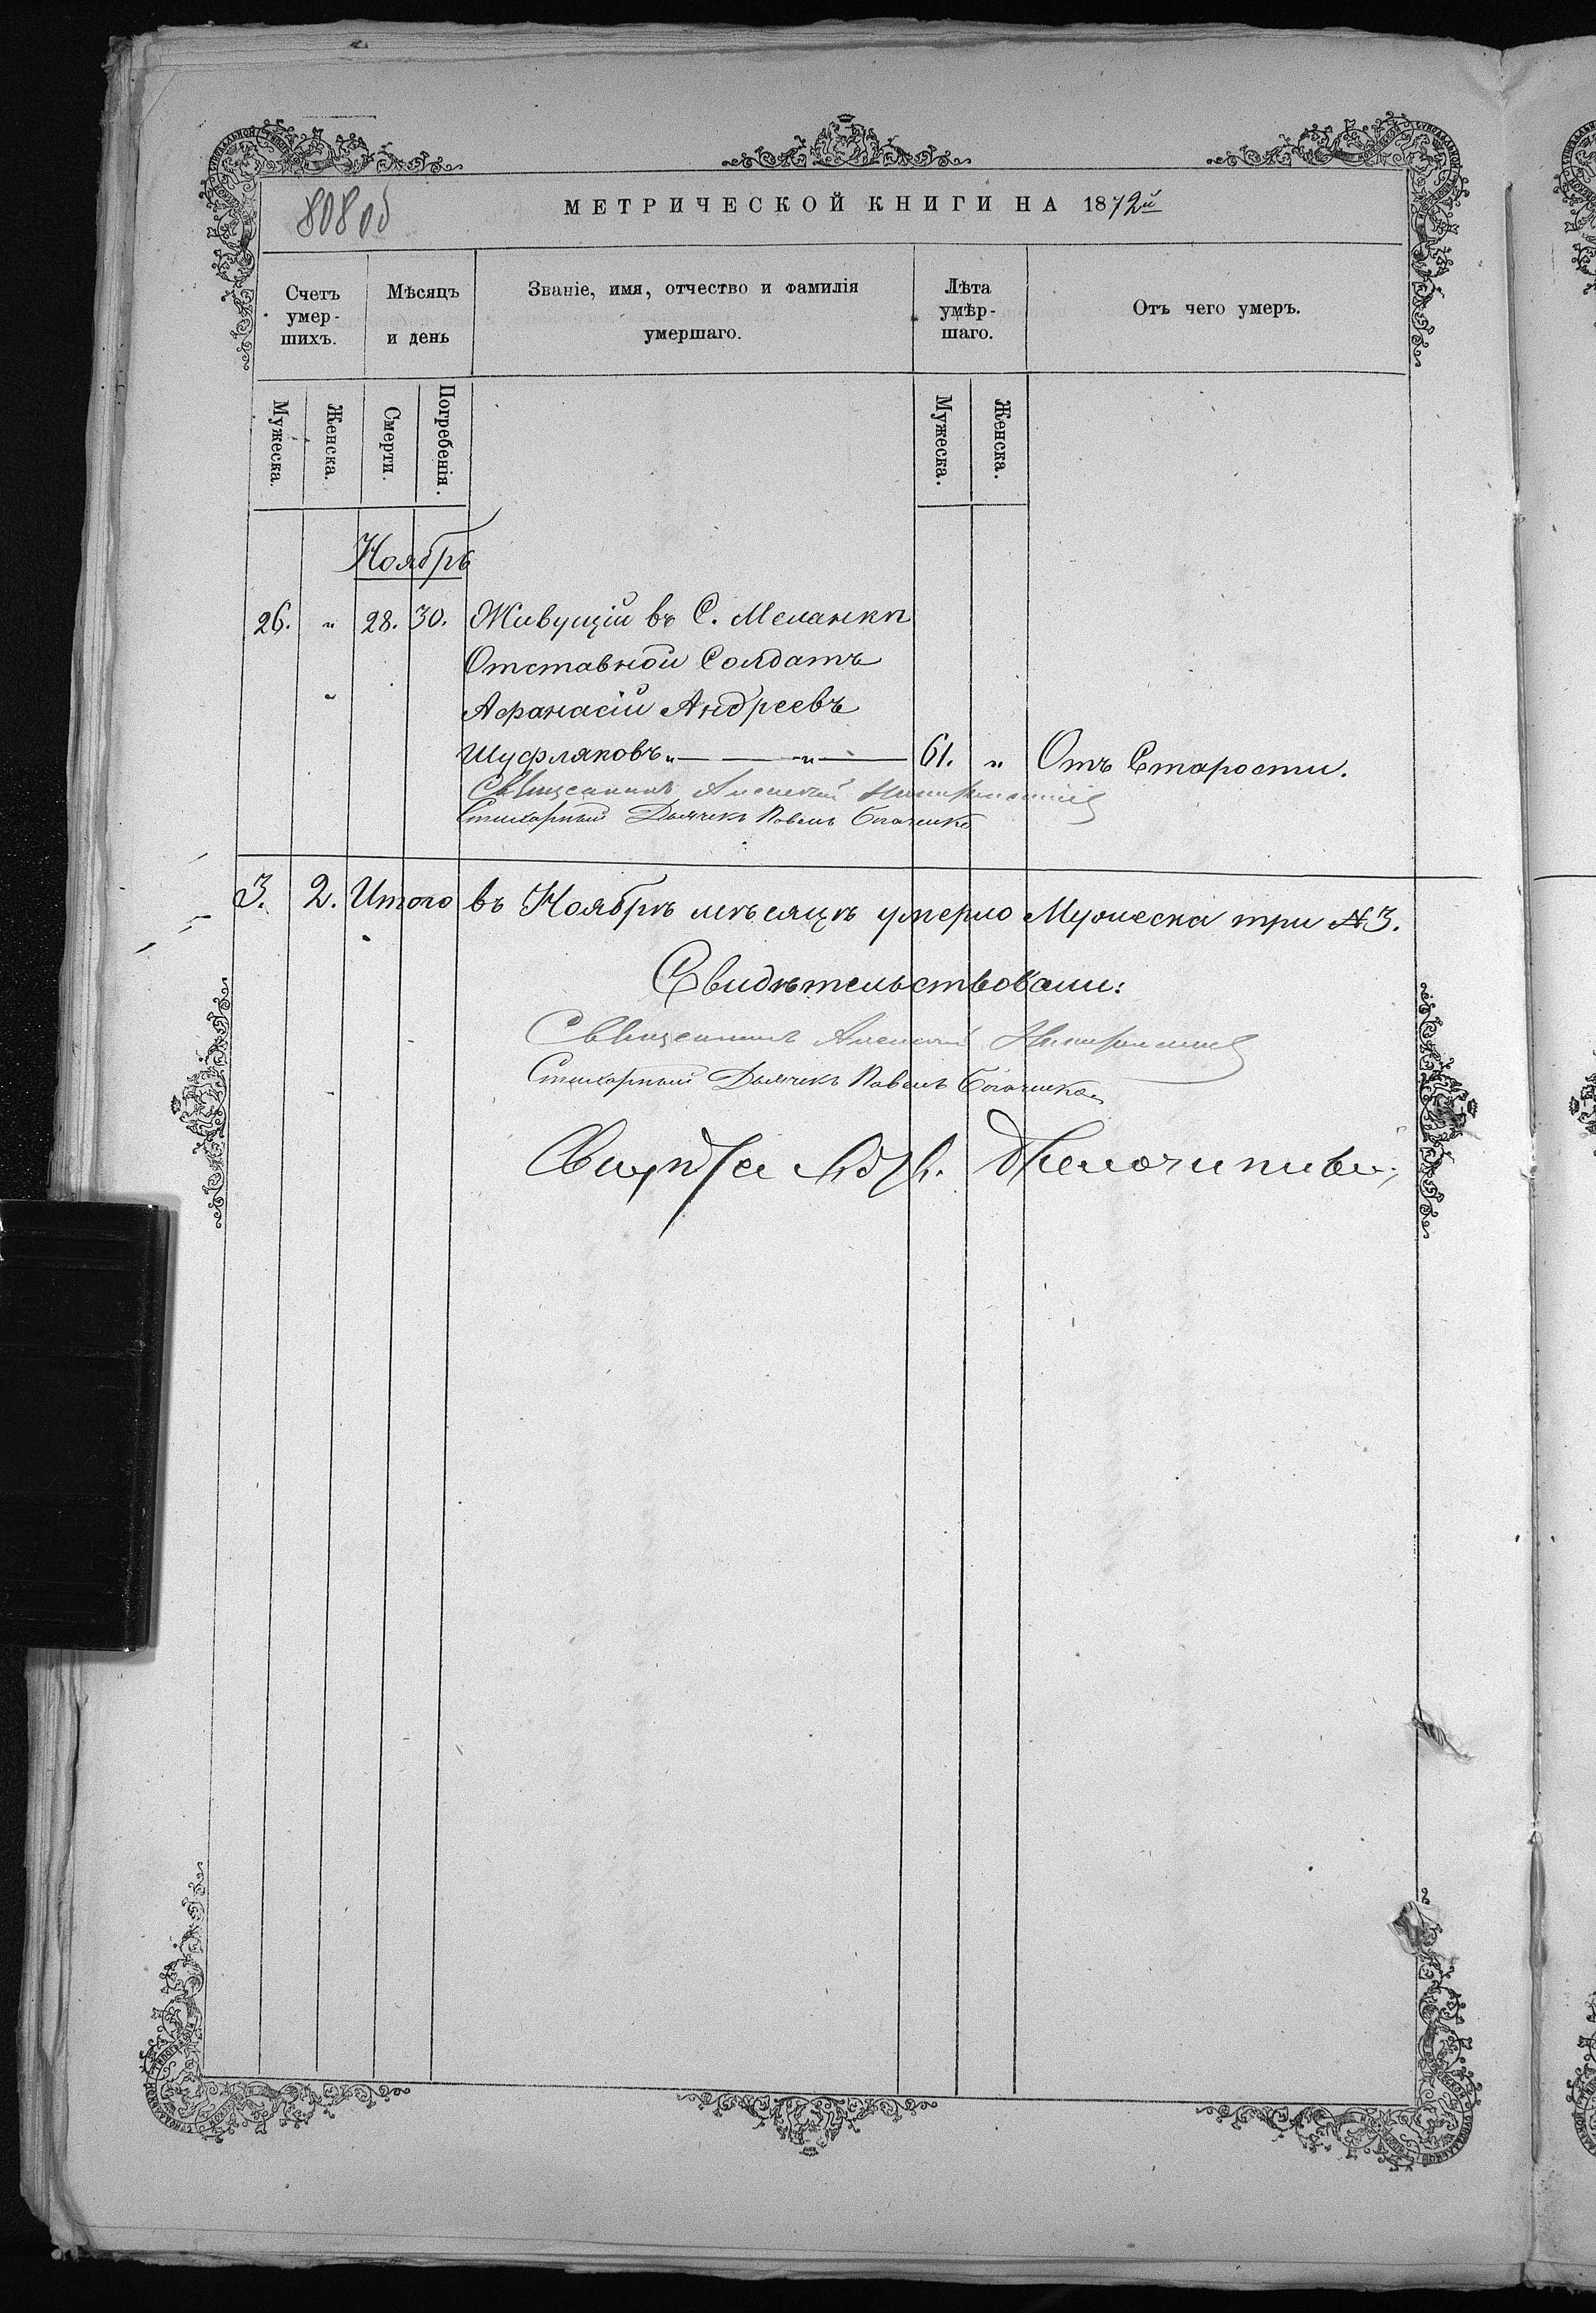 808 об
МЕТРИЧЕСКОЙ КНИГИ НА 1872й
Счетъ умер-шихъ.
Мѣсяцъ и день
Званіе, имя, отчество и фамилія умершаго.
Лѣта умѣр-шаго.
Отъ чего умеръ.
Мужеска.
Женска.
Смерти.
Погребенія.
Мужеска.
Женска.
Ноябрь
26. " 28. 30. Живущій въ С. Меланки
Отставной Солдатъ
Афанасій Андреевъ
Шуфляковъ „— — „ — 61. " Отъ Старости.
Священникъ Алексѣй
Стихарный Дьячекъ Павелъ
3. 2. Итого въ Ноябрѣ мѣсяцѣ умерло Мужеска три № 3.
Свидѣтельствовали:
Священникъ Алексѣй
Стихарный Дьячекъ Павелъ